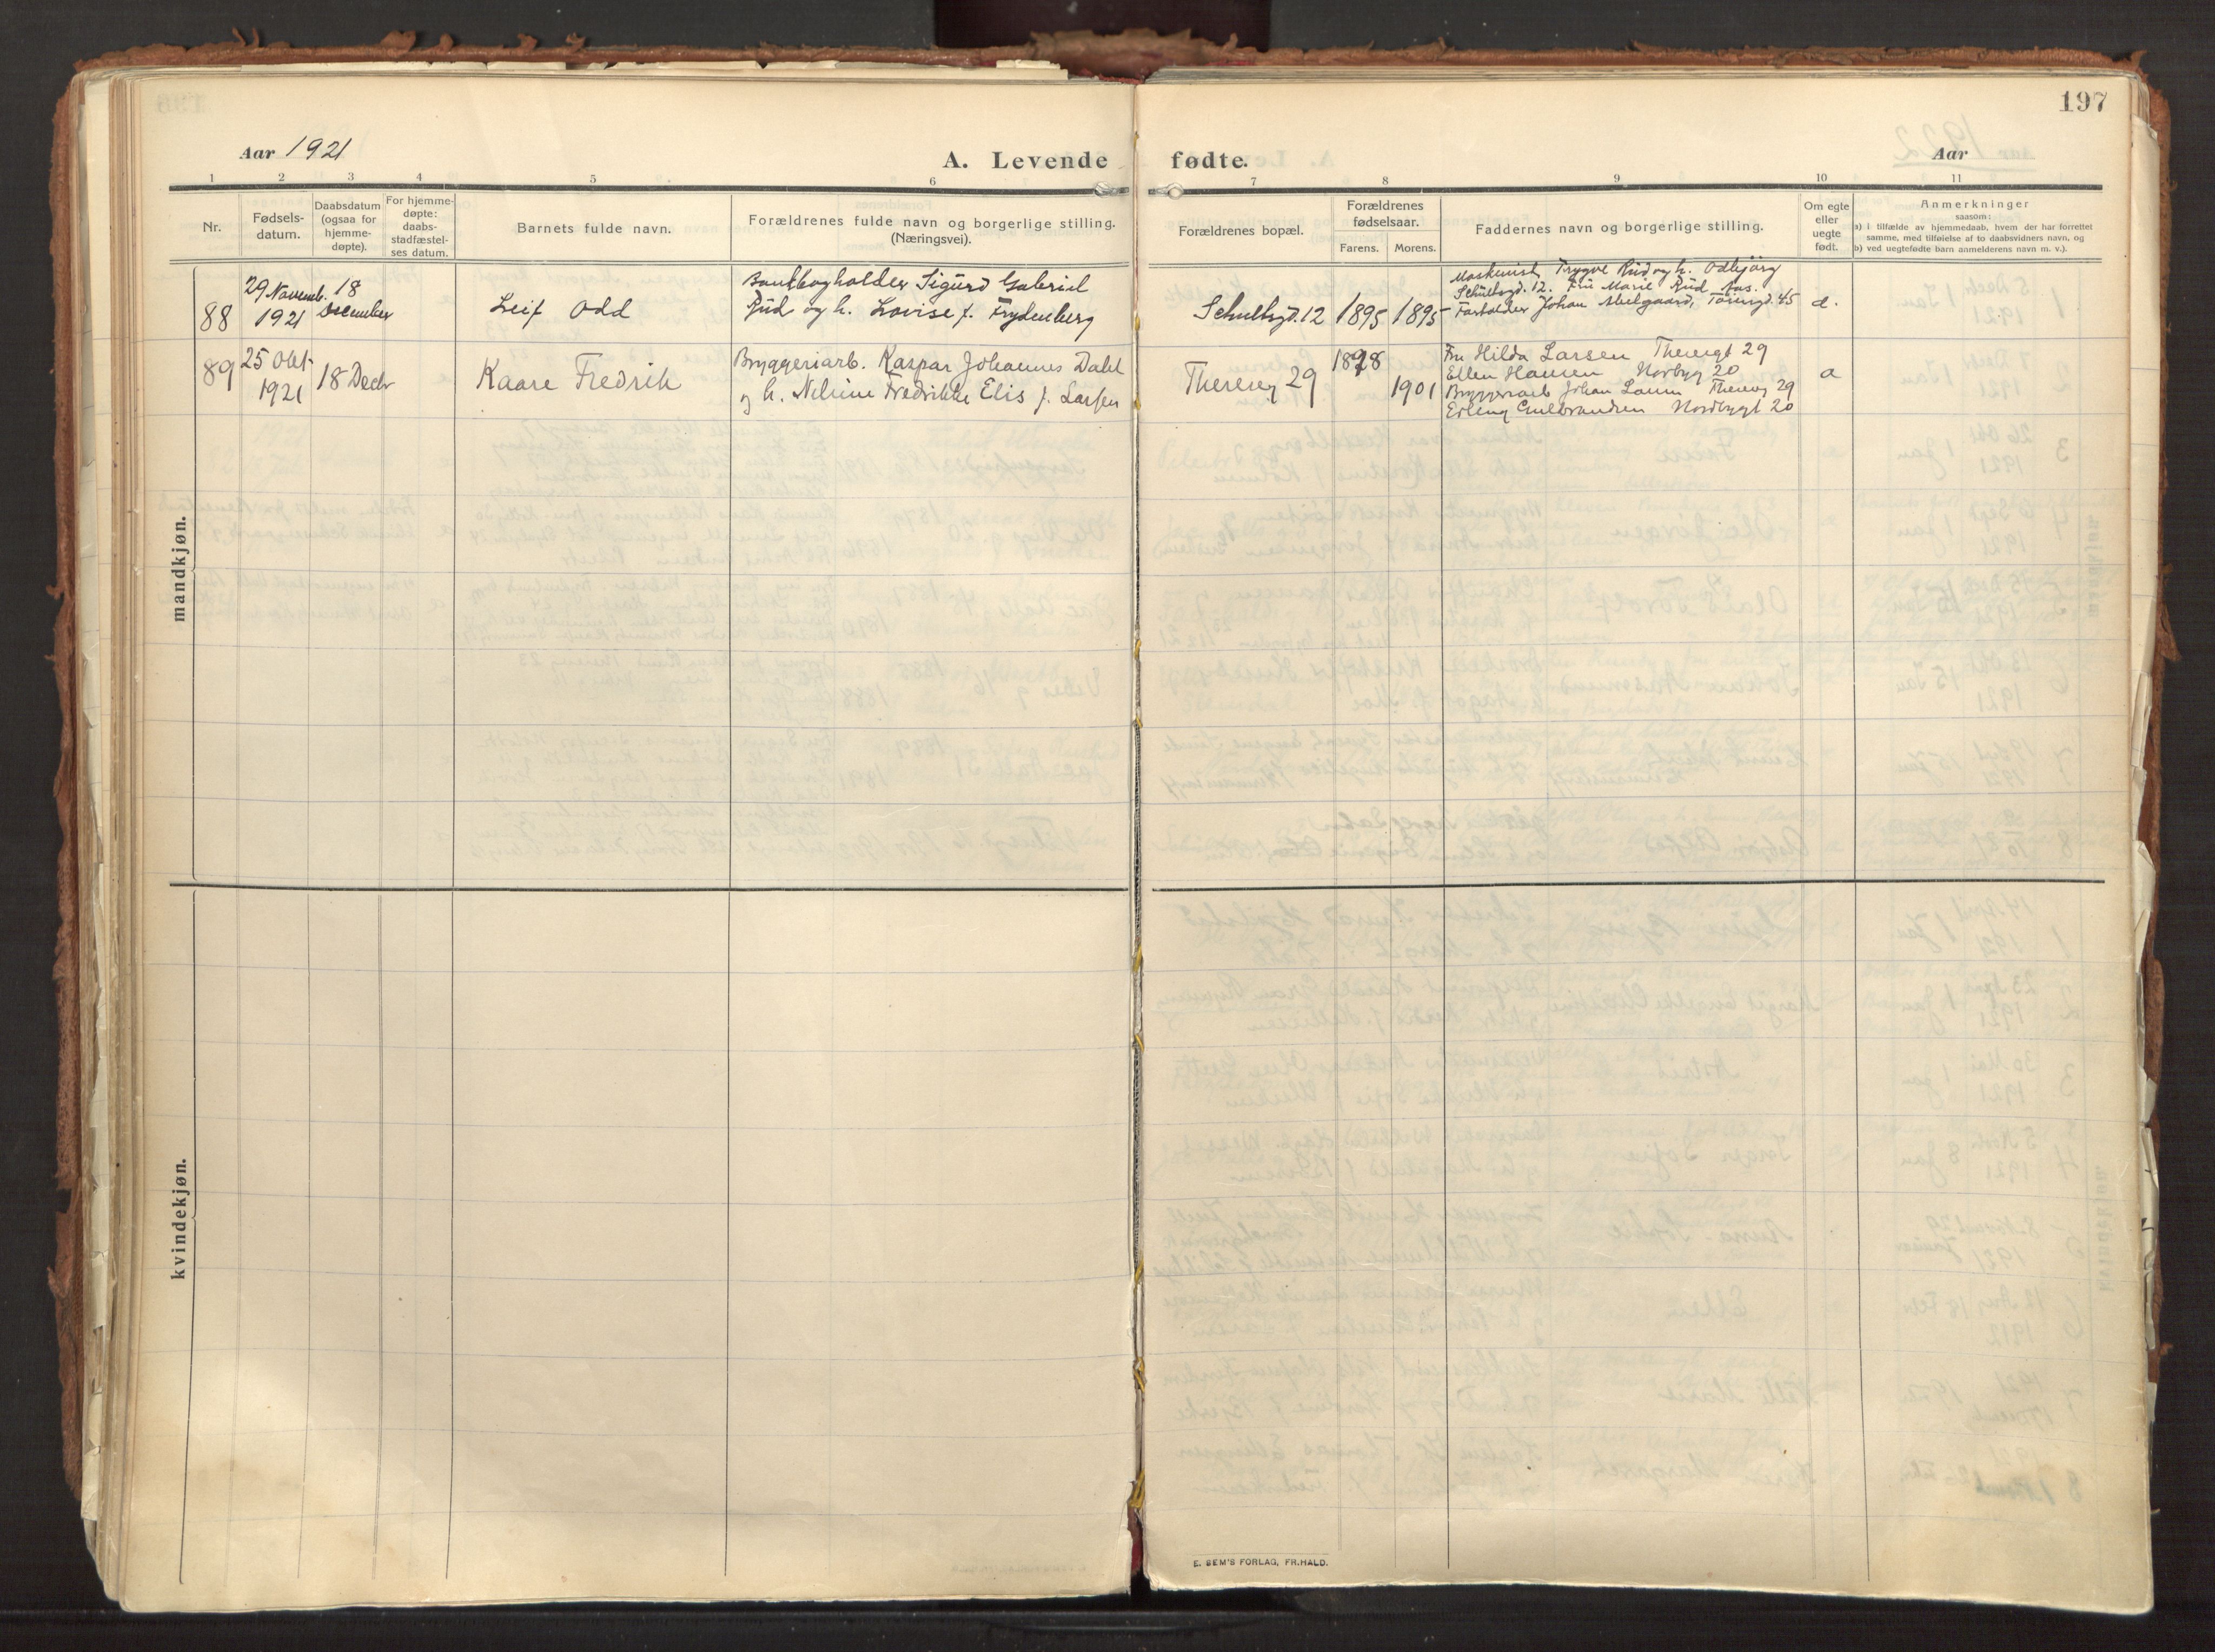 197
Aar 1921
A. Levende
fødte.
Aar
1 2 3 4 5 6
7 8 9 10 11
Nr.
Fødsels-
datum.
Daabsdatum
(ogsaa for
hjemme-
døpte).
For hjemme-
døpte:
daabs-
stadfæstel-
ses datum.
Barnets fulde navn.
Forældrenes fulde navn og borgerlige stilling.
(Næringsvei).
Forældrenes bopæl.
Forældrenes
fødselsaar.
Farens. Morens.
Faddernes navn og borgerlige stilling.
Om egte
eller
uegte
født.
Anmerkninger
saasom:
a) i tilfælde av hjemmedaab, hvem der har forrettet
samme, med tilføielse af to daabsvidners navn, og
b) ved uegtefødte barn anmelderens navn m. v.).
mandkjøn.
88
29 Novemb.
1921
18
December
Leif Odd
Bankbogholder Sigurd Gabriel
Rud og h. Lovise f. Frydenberg
Schultzgd. 12
1895
1895
Maskinist Trygve Rud og h. Odbjørg
Schultzgd. 12. Fru Marie Rud Aas.
Forvalter Johan Melgaard, 45
a.
89
25 Okt
1921
18 Decbr
Kaare Fredrik
Bryggeriarb. Kaspar Johannes Dahl
og h. Fredrikke Elis f. Larsen
Thereseg 29
1898
1901
Fru Hilda Larsen Theresgt 29
Ellen Hansen Norbyg 20
Bryggeriarb Johan Larsen Thereseg 29
Erling Gulbrandsen Nordbygt 20
a
kvindekjøn.
E. SEM'S FORLAG, FR.HALD.